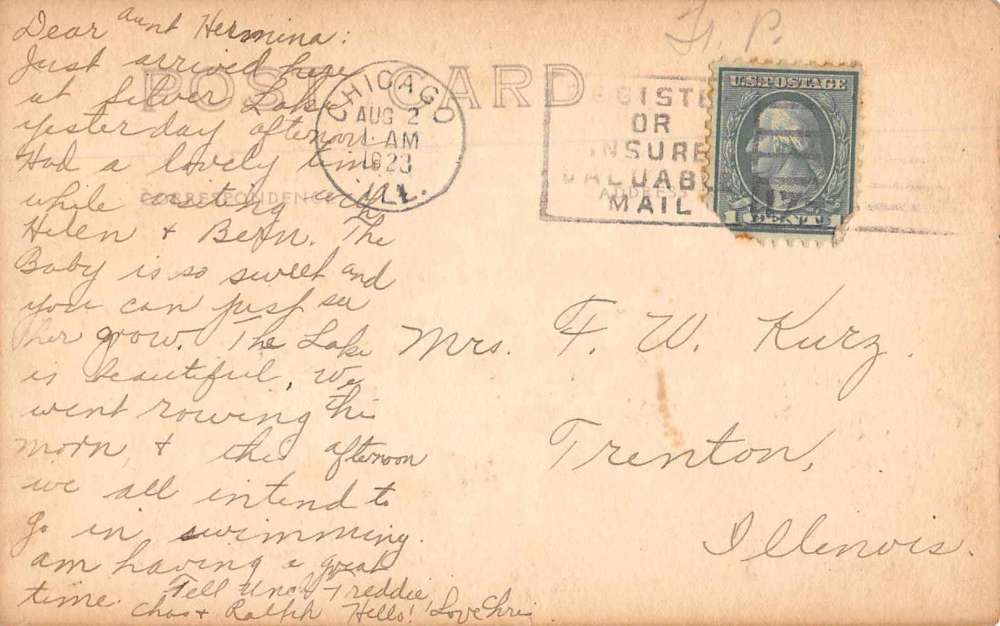 Dear Aunt Hermina:
Just arrived here
at Silver Lake
yesterday afternoon.
Had a lovely time
while visiting with
Helen + Bern. The
Baby is so sweet and
you can just see
her grow. The Lake
is beautiful, We
went rowing this
morn, + this afternoon
we all intend to
go in swimming.
am having a great
time. Tell Uncl Freddie
Chas + Ralph Hello! Love Chris
POST CARD
CORRESPONDENCE
CHICAGO
AUG 2
AM
1923
ILL.
REGISTE
OR
INSURE
VALUABL
MAIL
U.S. POSTAGE
CENT
Mrs. F. W. Kurz.
Trenton,
Illinois.